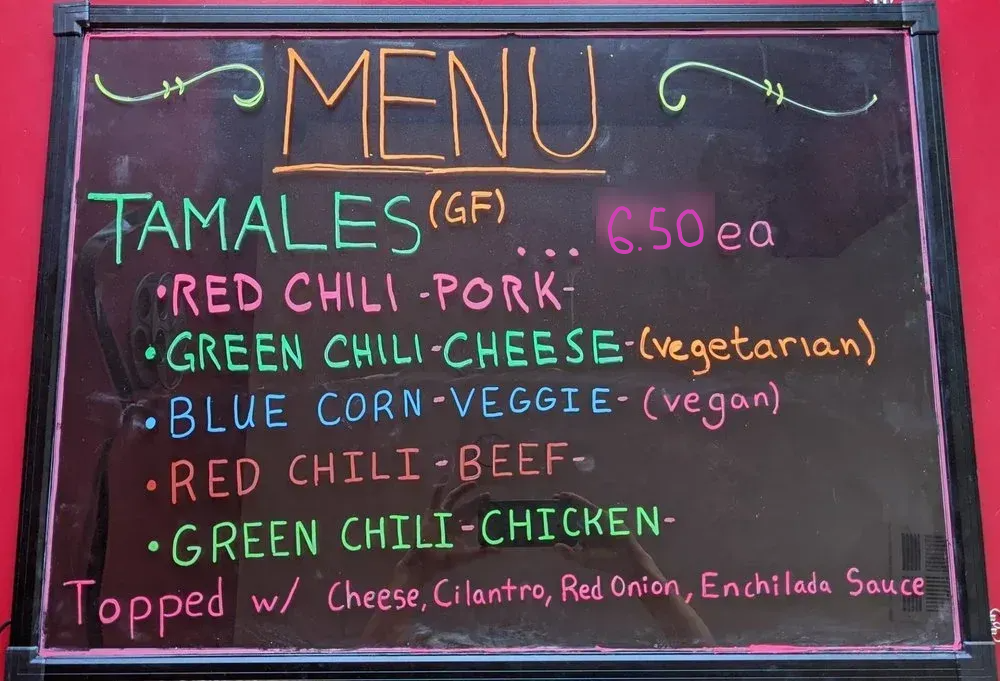 MENU
TAMALES (GF) ... 6.50 ea
• RED CHILI -PORK-
• GREEN CHILI-CHEESE-(vegetarian)
• BLUE CORN-VEGGIE-(vegan)
• RED CHILI-BEEF-
• GREEN CHILI-CHICKEN-
Topped w/ Cheese, Cilantro, Red Onion, Enchilada Sauce